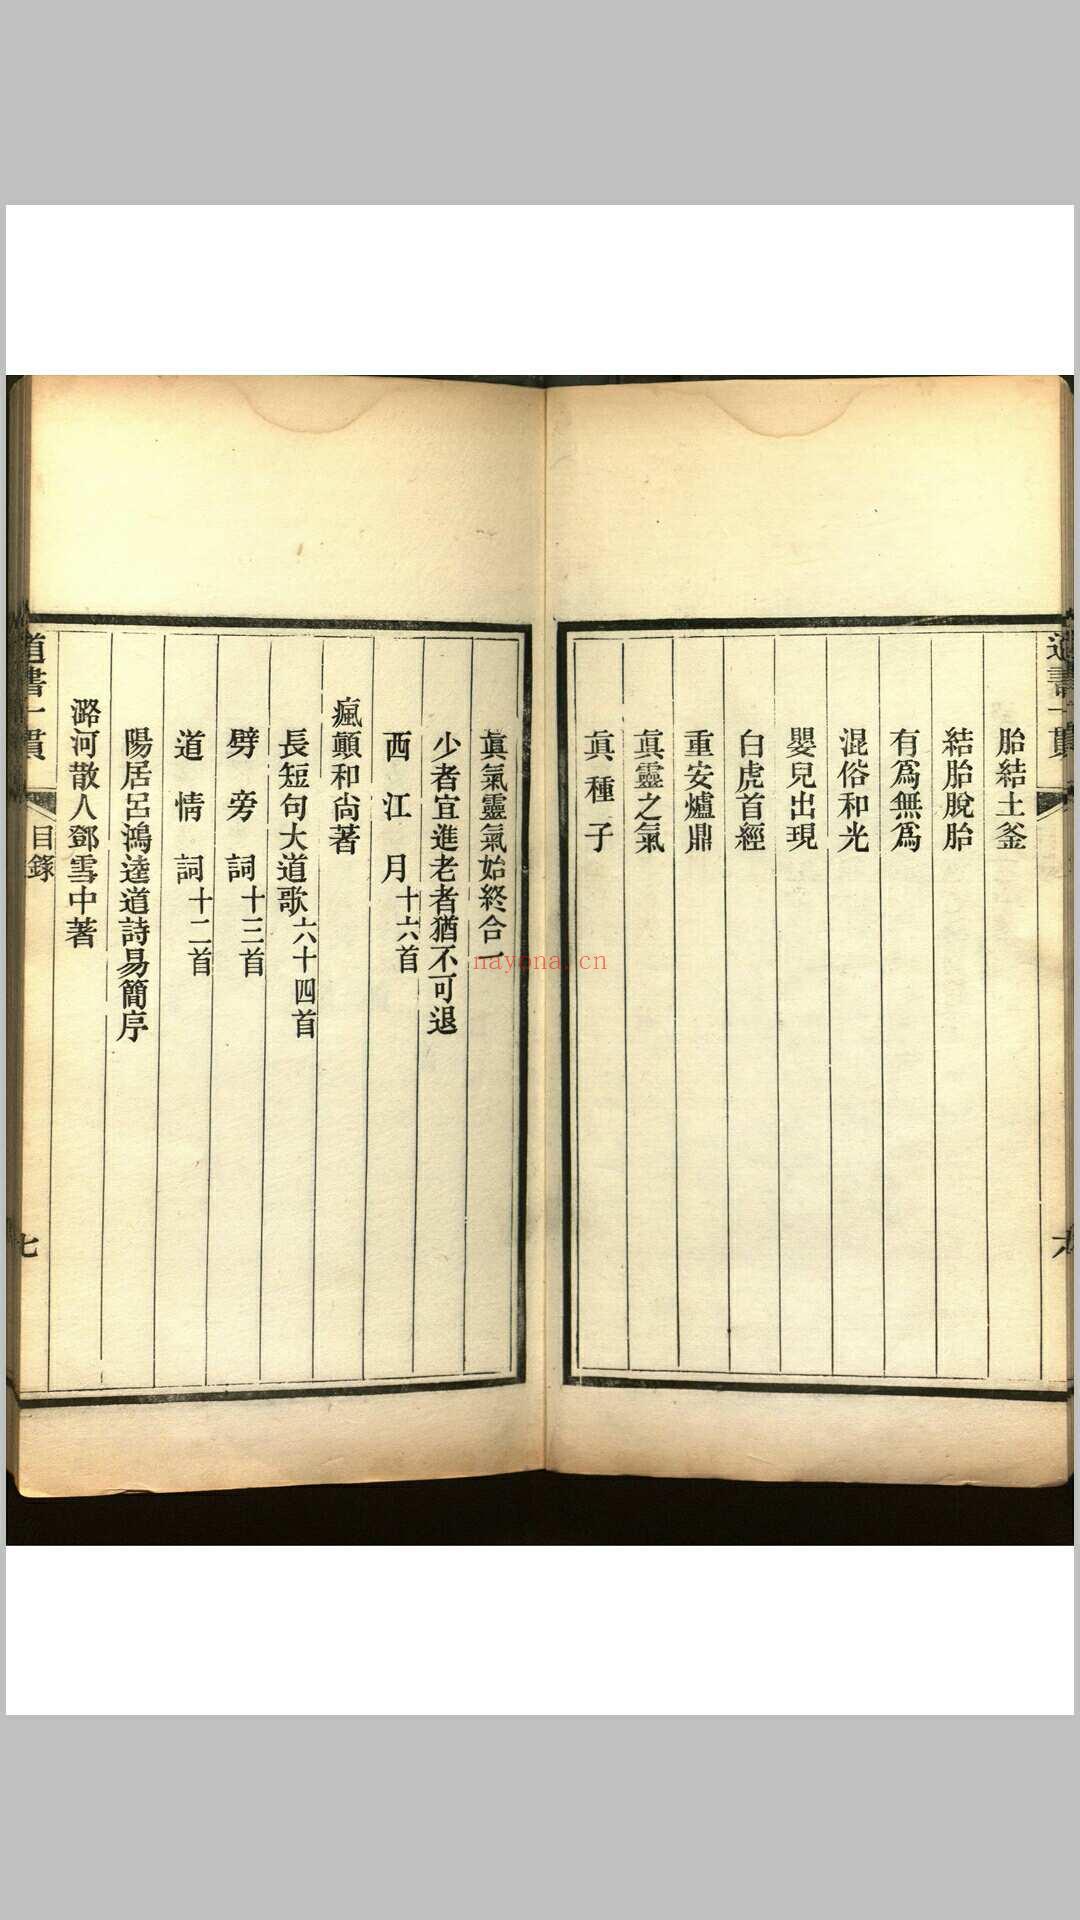 道書一貫
六
胎結土釜
結胎脫胎
有爲無爲
混俗和光
嬰兒出現
白虎首經
重安爐鼎
眞靈之氣
眞種子
眞氣靈氣始終合一
少者宜進老者猶不可退
西江月十六首
瘋顛和尙著
長短句大道歌六十四首
劈旁詞十三首
道情詞十二首
陽居呂鴻逵道詩易簡序
潞河散人鄧雪中著
道書一貫
目錄
七
nayona.cn